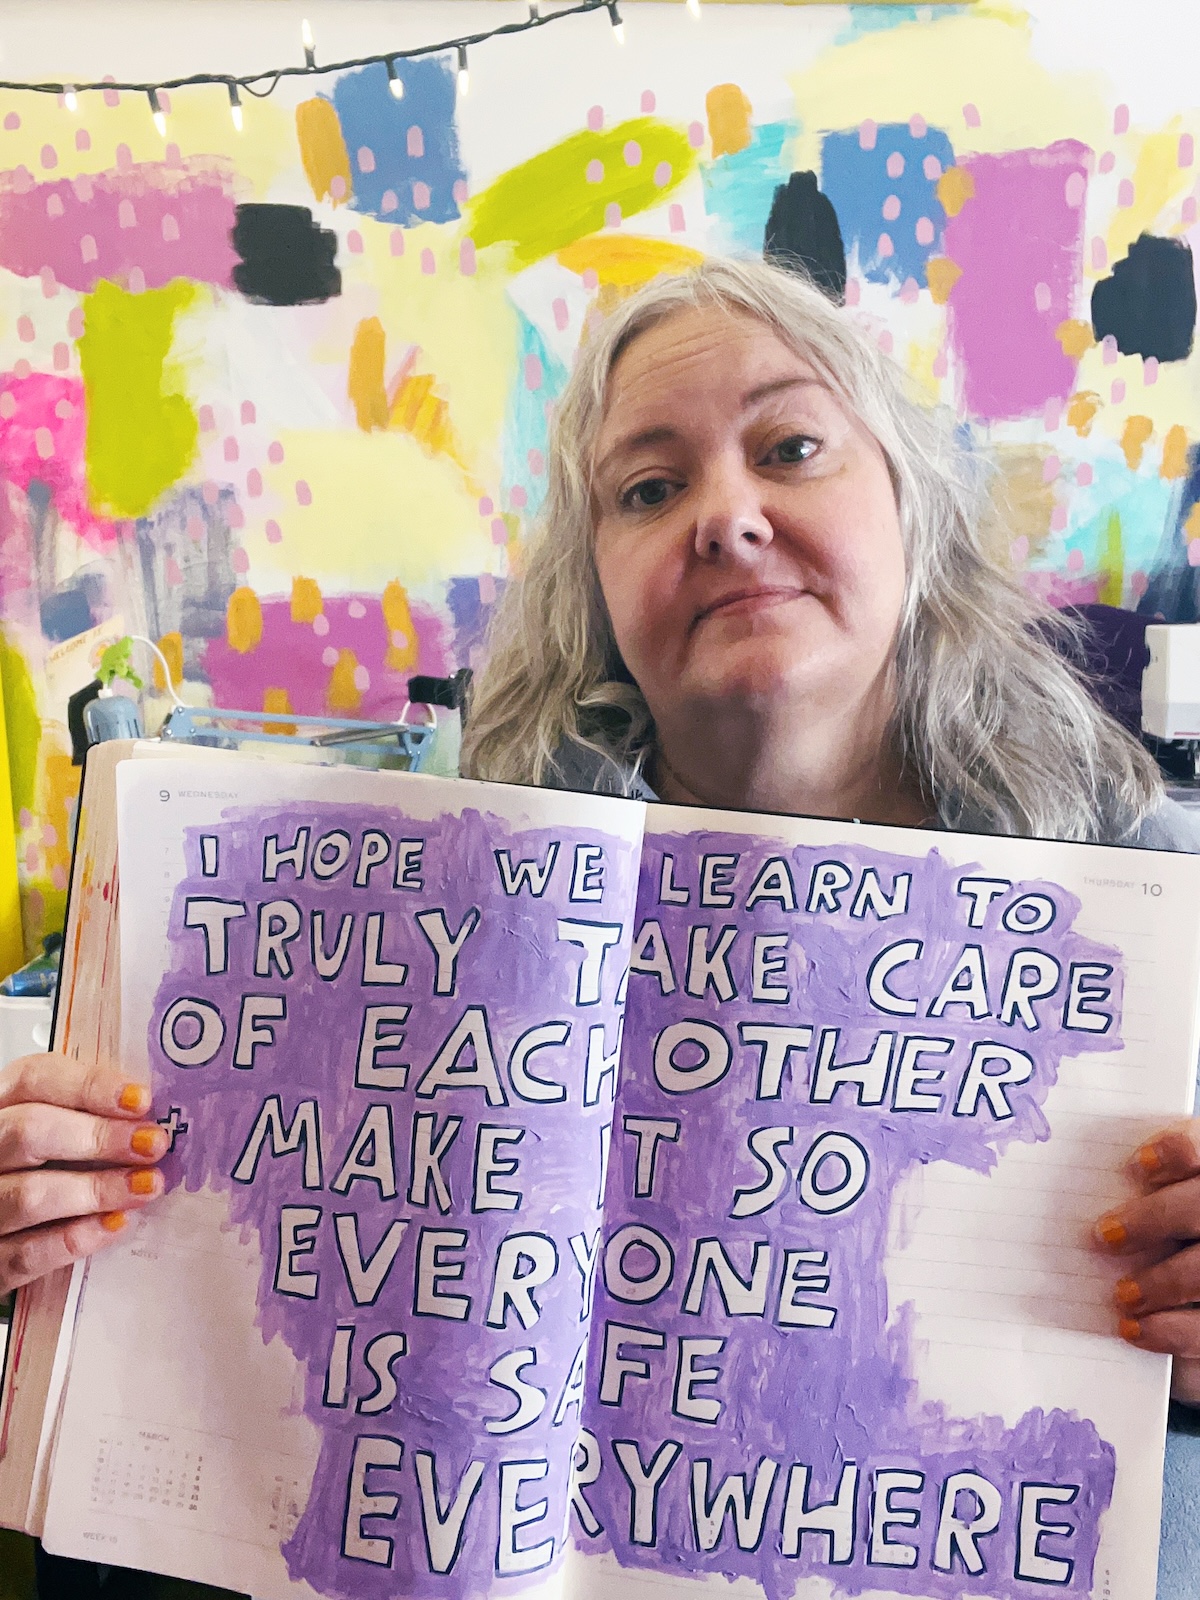 9 WEDNESDAY
THURSDAY 10
I HOPE WE LEARN TO
TRULY TAKE CARE
OF EACH OTHER
+ MAKE IT SO
EVERYONE
IS SAFE
EVERYWHERE
NOTES
MARCH